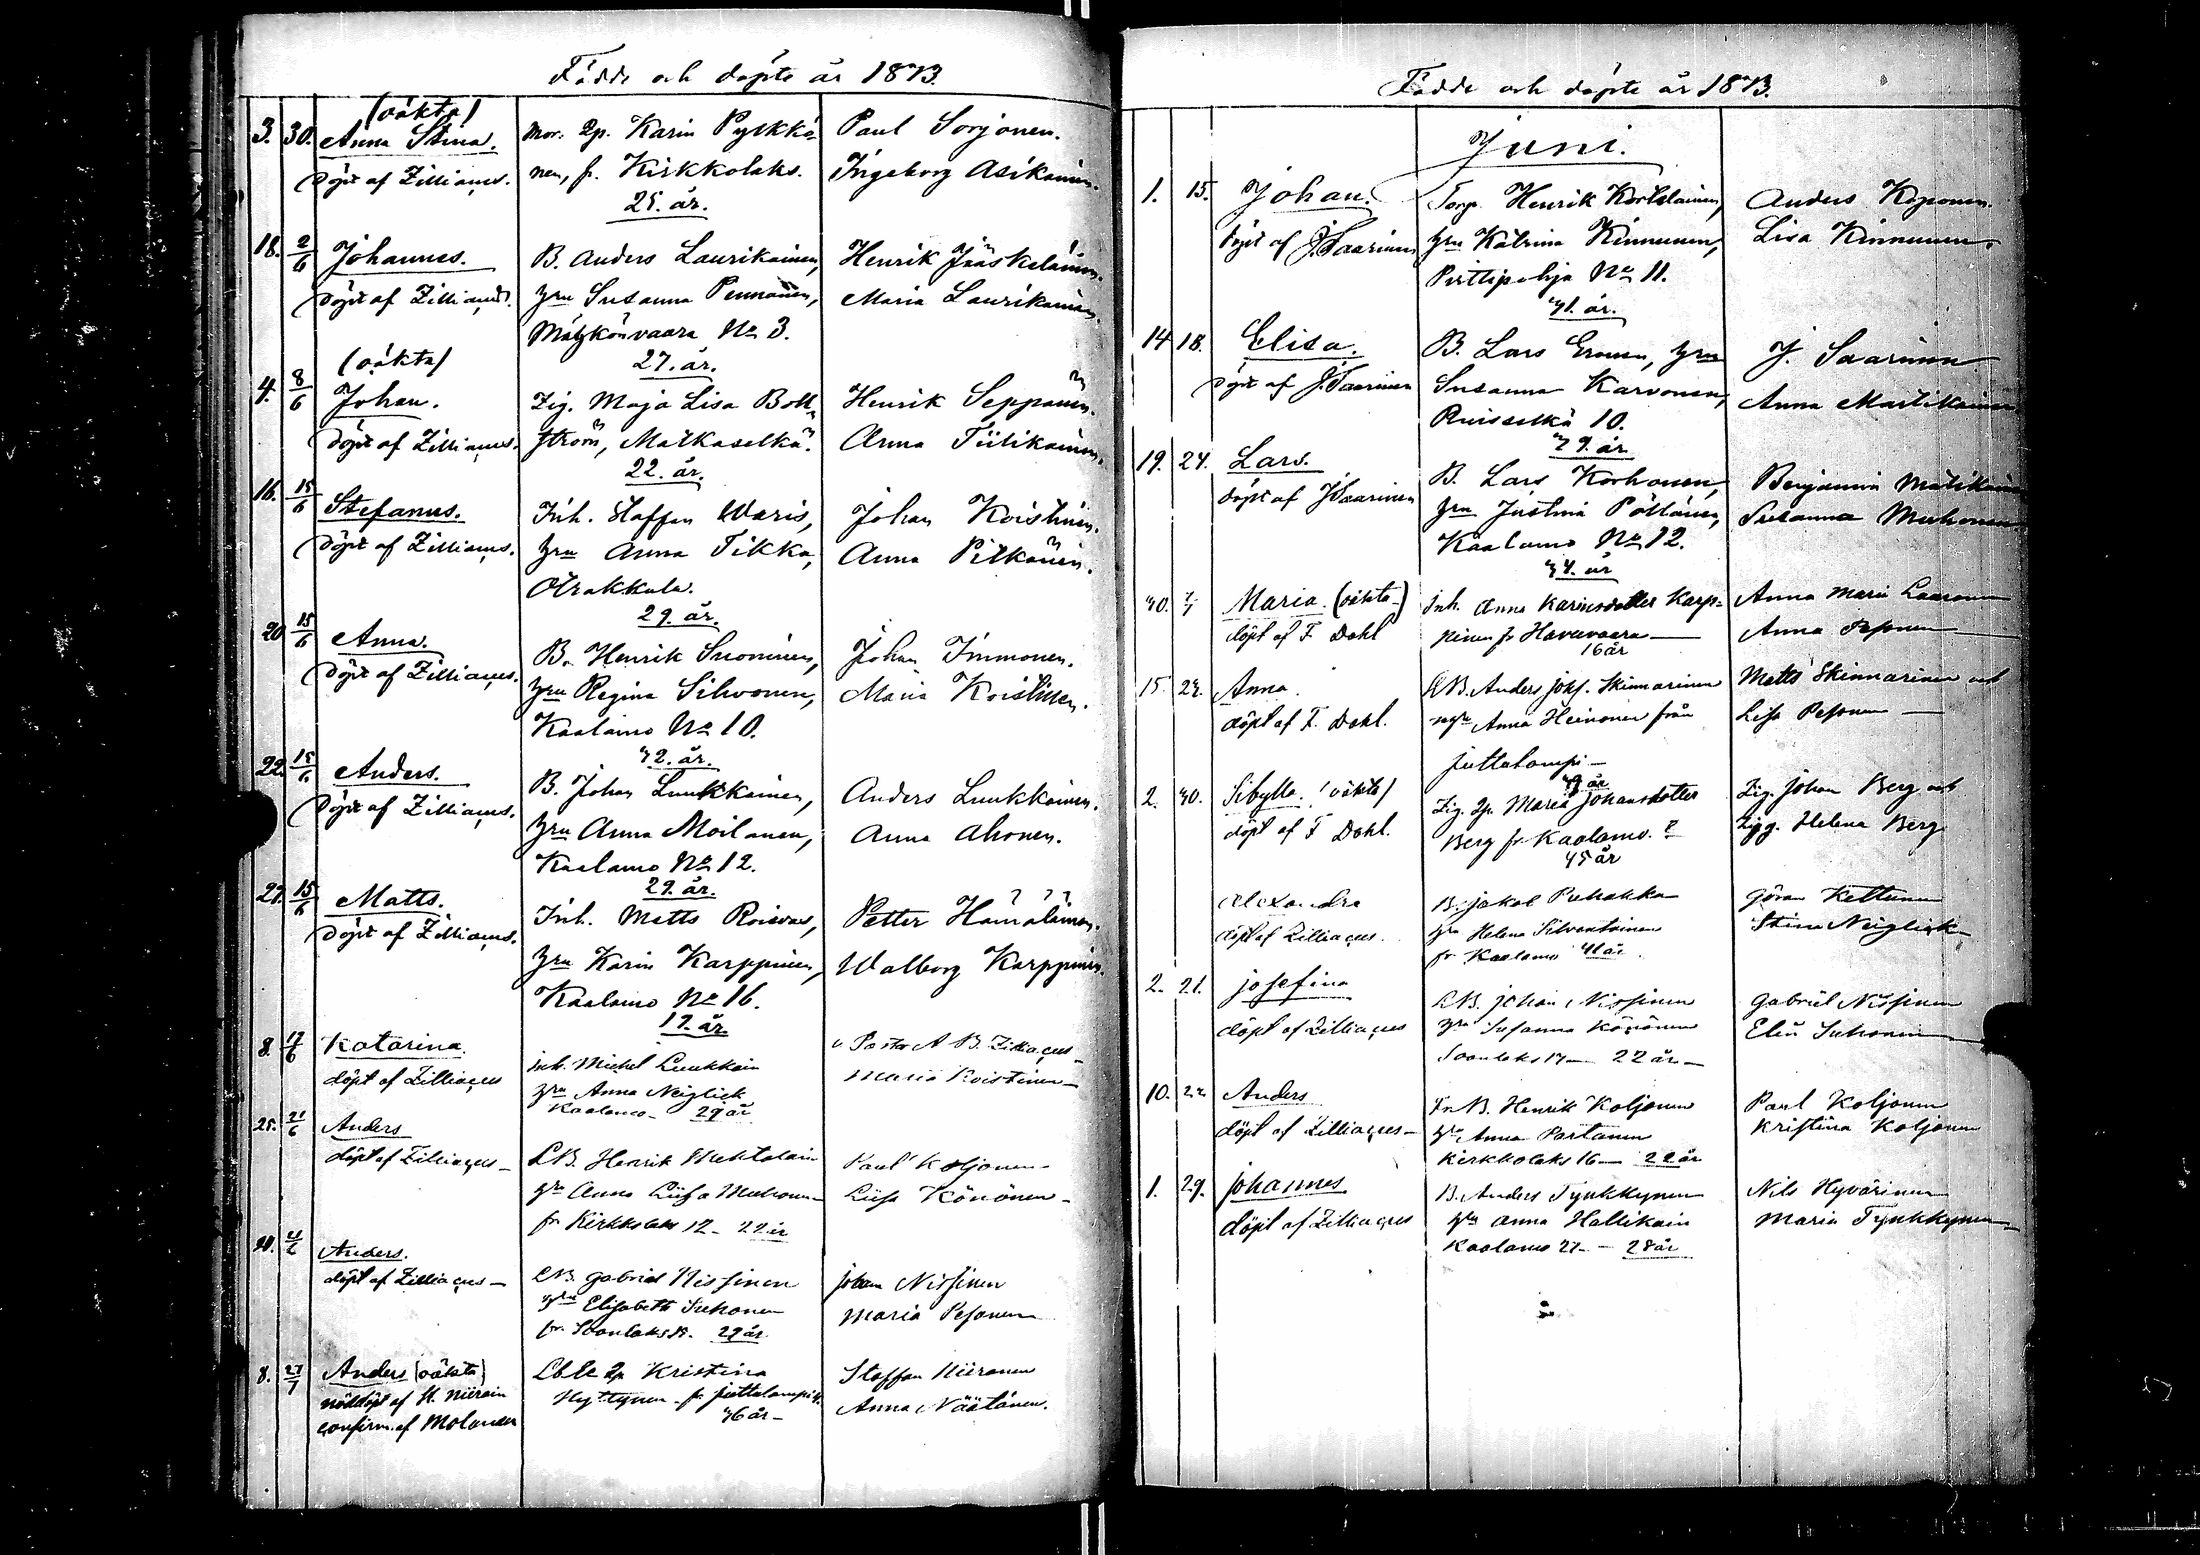 Födde och döpte år 1873.
(oäkta)
3. 30. Anna Stina. Mor: Qp. Karin Pylkkä- Paul Sorjonen.
döpt af Zilliacus. nen, fr. Kirkkolaks. Ingeborg Asikainen.
25. år.
18. 2/6 Johannes. B. Anders Laurikainen, Henrik Jääskeläinen.
döpt af Zilliacus. hru Susanna Pennanen, Maria Laurikainen.
Mätzkönvaara No 3.
27. år.
(oäkta)
4. 8/6 Johan. Zig. Maja Lisa Boll- Henrik Seppänen.
döpt af Zilliacus. ström, Matkaselkä. Anna Tiitikainen.
22. år.
16. 15/6 Stefanus. Inh. Staffan Waris, Johan Koistinen.
döpt af Zilliacus. hru Anna Tikka, Anna Pitkänen.
Otrakkala.
29. år.
20. 15/6 Anna. B. Henrik Suominen, Johan Immonen.
döpt af Zilliacus. hru Regina Silvonen, Maria Koistinen.
Kaalamo No 10.
32. år.
22. 15/6 Anders. B. Johan Luukkainen, Anders Luukkainen.
döpt af Zilliacus. hru Anna Moilanen, Anna Ahonen.
Kaalamo No 12.
29. år.
27. 15/6 Matts. Inh. Matts Roivas, Petter Hämäläinen.
döpt af Zilliacus. hru Karin Karppinen, Walborg Karppinen.
Kaalamo No 16.
19. år
8. 17/6 Katarina Inh. Michel Luukkain Pastor A B. Zilliacus
döpt af Zilliacus hru Anna Neiglick Maria Koistinen
Kaalamo 29 år
25. 21/6 Anders LB. Henrik Paul Koljonen
döpt af Zilliacus hru Anna Liisa Muhonen Liisa Könönen
fr Kirkkolaks 12 22 år
Anders. LB. Gabriel Nissinen Johan Nissinen
döpt af Zilliacus hru Elisabeth Suhonen Maria Pesonen
fr. Soanlaks 29 år
8. 27/7 Anders (oäkta) Qp Kristina Staffan Niiranen
nöddöpt af St. Niirain Hyttynen fr juttulampi Anna Näätänen.
confirm. af Molander 36 år
Födde och döpte år 1873.
Juni.
1. 15. Johan. Torp. Henrik Kortelainen, Anders Koponen.
döpt af J. Saarinen hru Katrina Kinnunen, Lisa Kinnunen.
Pirttipohja No 11.
31. år.
14 18. Elisa. B. Lars Eronen, hru J. Saarinen
döpt af J. Saarinen Susanna Karvonen, Anna Martikainen
Ruisselkä 10.
39. år
19. 24. Lars. B. Lars Korhonen, Benjamin Matikain
döpt af J. Saarinen hru Justina Pöllänen, Susanna Muhonen
Kaalamo No 12.
34. år
30. Maria. (oäkta) Inh. Anna Karinsdotter Karp- Anna Maria
döpt af F. Dahl pinen fr Havuvaara Anna Pesonen
16 år
15. 24. Anna. Anders Johs. Skinnarinen Matts Skinnarinen och
döpt af F. Dahl. Anna Heinonen från Lisa Pesonen
juttulampi
39 år
2. 30. Sibylla. (oäkta) Zig. Qp. Maria Johansdotter Zig. Johan Berg och
döpt af F Dahl. Berg fr. Kaalamo. Zig. Helena Berg
45 år
Alexandra B. Jakob Puhakka Göran Kettunen
döpt af Zilliacus. hru Helena Silvantainen Stina Neiglick
fr Kaalamo 41 år
2. 21. Josefina LB. Johan Nissinen Gabriel Nissinen
döpt af Zilliacus hru Susanna Könönen Elin Suhonen
Soanlaks 22 år
10. 22 Anders B. Henrik Koljonen Paul Koljonen
döpt af Zilliacus hru Anna Partanen Kristina Koljonen
Kirkkolaks 16 22 år
1. 29. Johannes B. Anders Tynkkynen Nils Hyvärinen
döpt af Zilliacus hru Anna Hallikain Maria Tynkkynen
Kaalamo 27 28 år